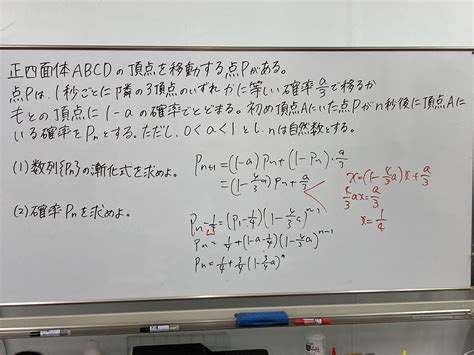 正四面体ABCDの頂点を移動する点Pがある。
点Pは、1秒ごとに隣の3頂点のいずれかに等しい確率a/3で移るか
もとの頂点に1-aの確率でとどまる。初め頂点Aにいた点Pがn秒後に頂点Aに
いる確率をPnとする。ただし、0<a<1とし、nは自然数とする。
(1) 数列{Pn}の漸化式を求めよ。
Pn+1 = (1-a)Pn + (1-Pn)・a/3
= (1-4/3a)Pn + a/3
x = (1-4/3a)x + a/3
4/3ax = a/3
x = 1/4
(2) 確率Pnを求めよ。
Pn-1/4 = (P1-1/4)(1-4/3a)^n-1
Pn = 1/4 + (1-a-1/4)(1-4/3a)^n-1
Pn = 1/4 + 3/4(1-4/3a)^n